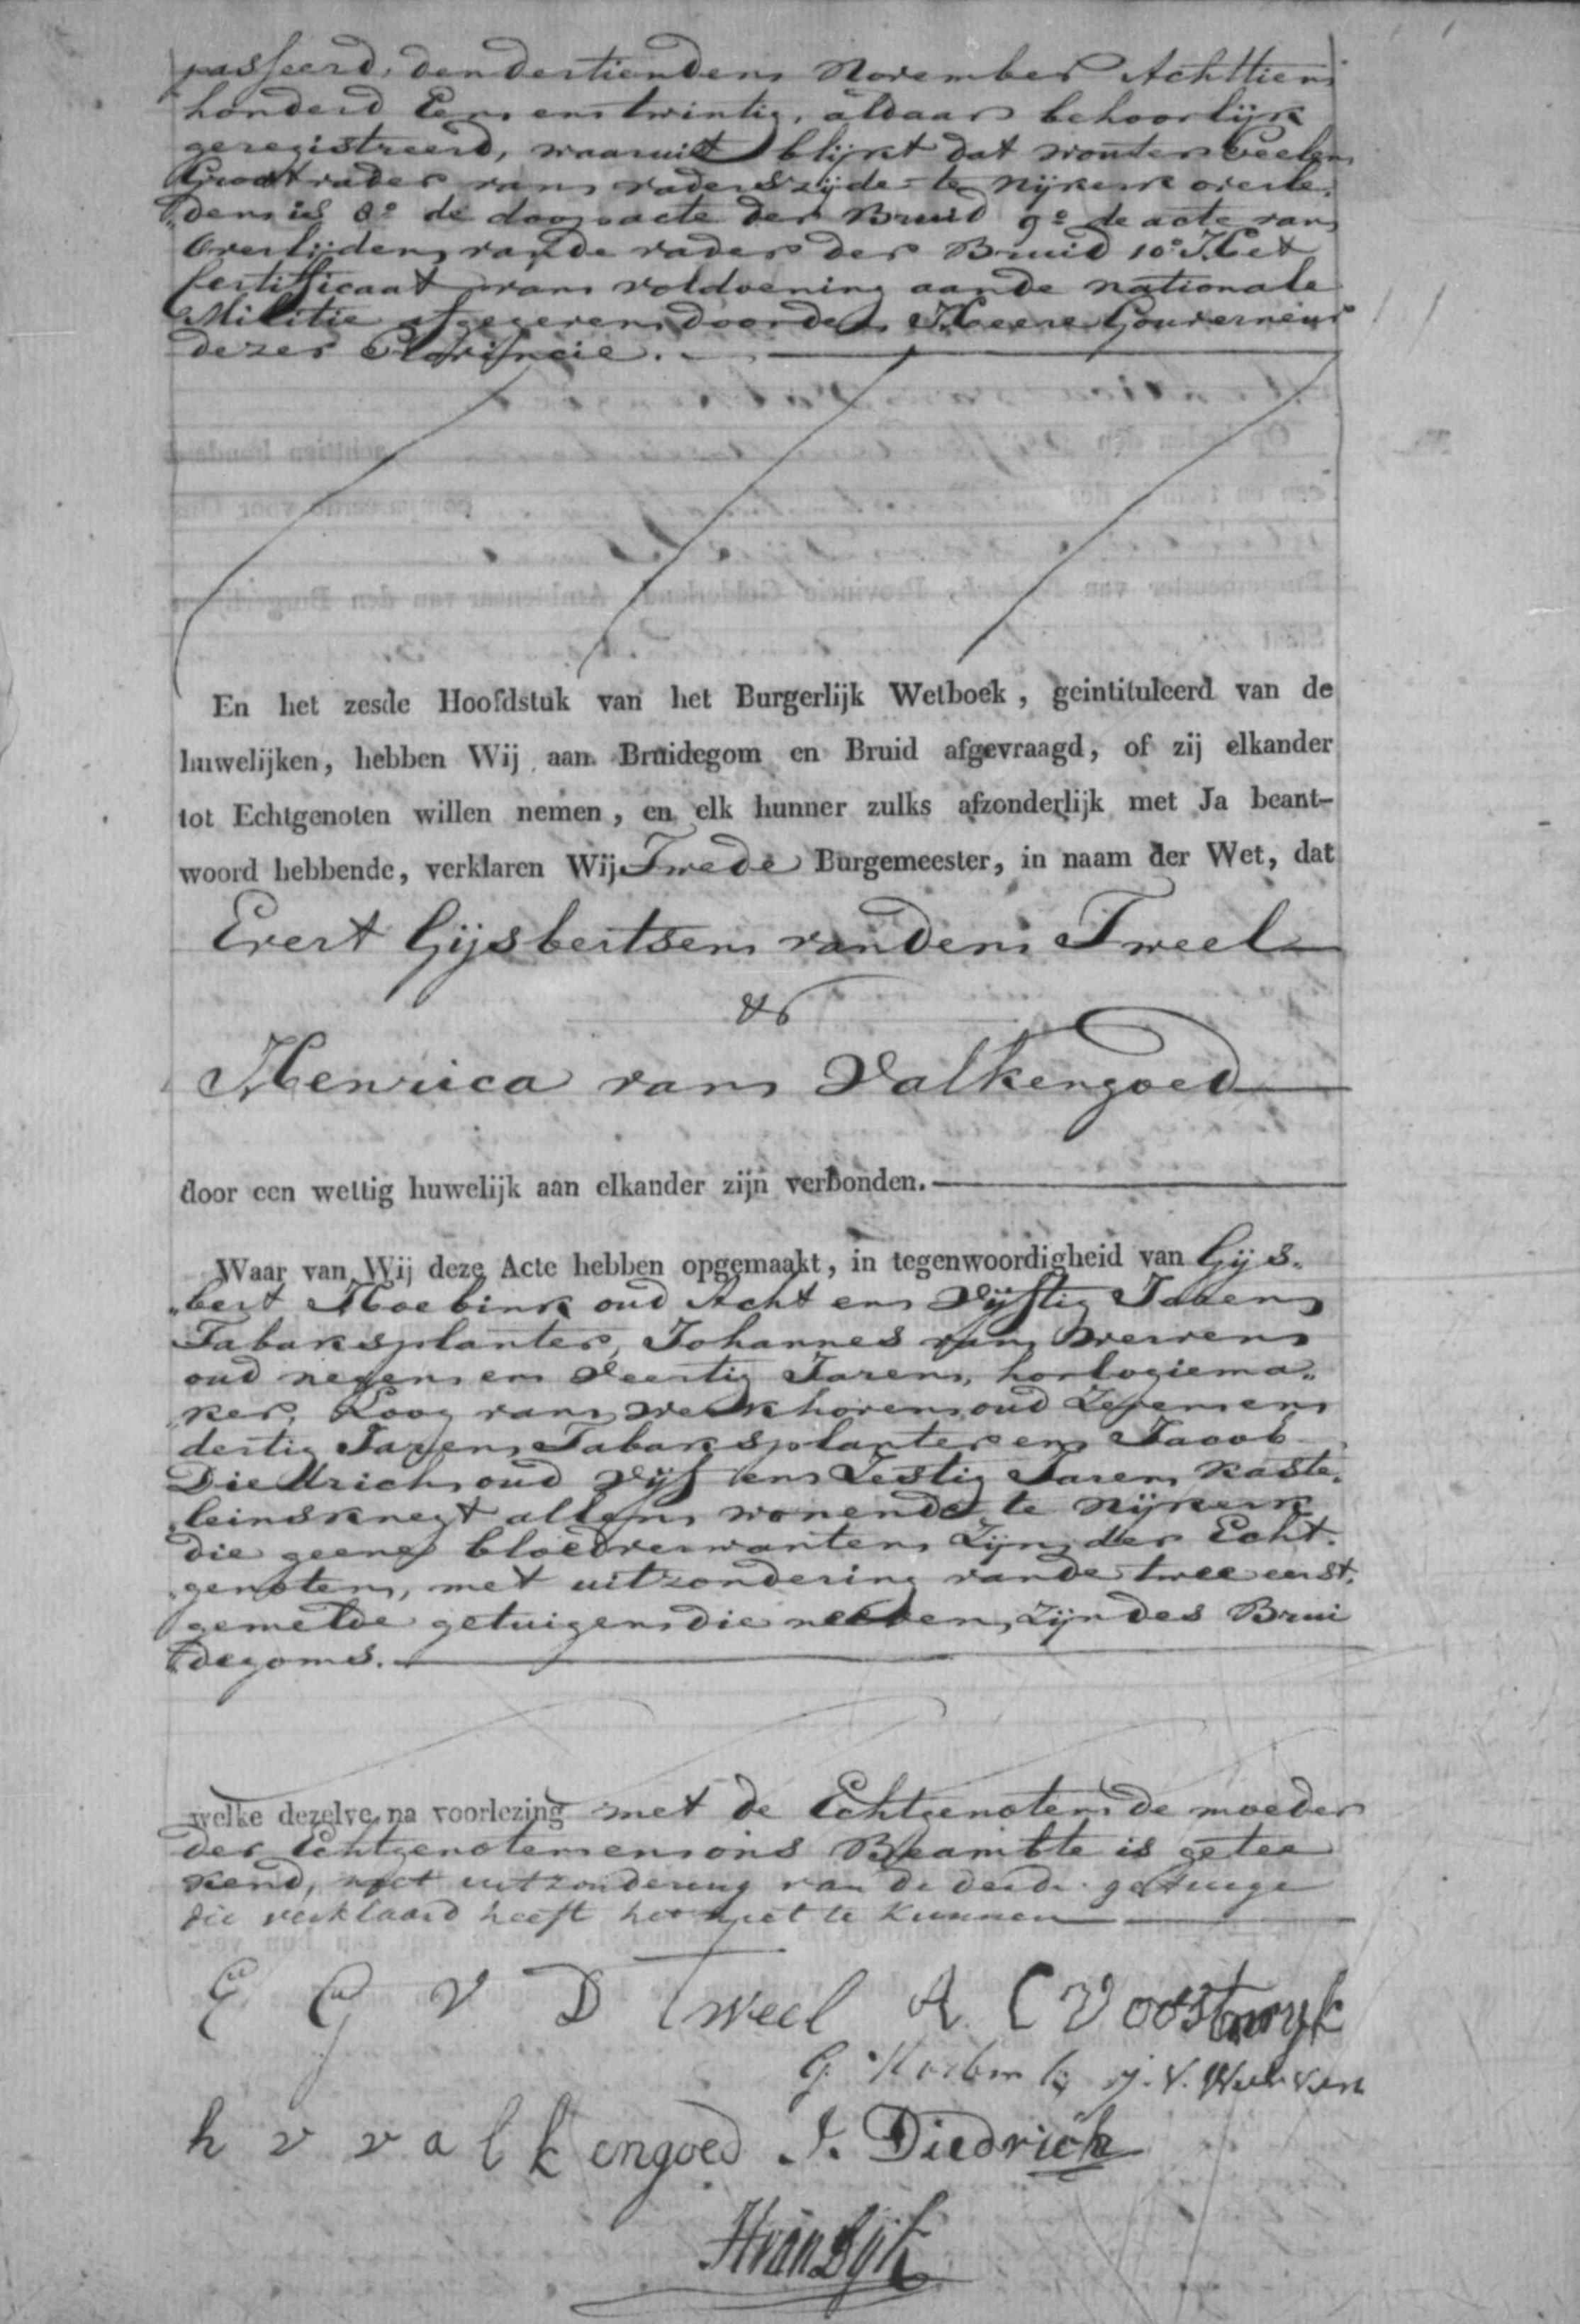 passeerd, den dertienden November Achttien
honderd Een en twintig, aldaar behoorlijk
geregistreerd, waaruit blijkt dat Wouter Ceelen
Grootvader van vaders zijde te Nijkerk overle„
„den is 8º de doopacte der Bruid 9º de acte van
Overlijden van de vader der Bruid 10º Het
Certifficaat van voldoening aan de nationale
Militie afgegeven door den Heere Gouverneur
dezer Provincie.
En het zesde Hoofdstuk van het Burgerlijk Wetboek, geintituleerd van de
huwelijken, hebben Wij aan Bruidegom en Bruid afgevraagd, of zij elkander
tot Echtgenoten willen nemen, en elk hunner zulks afzonderlijk met Ja beant-
woord hebbende, verklaren Wij Twede Burgemeester, in naam der Wet, dat
Evert Gijsbertsen van den Tweel
&
Henrica van Valkengoed
door een wettig huwelijk aan elkander zijn verbonden.
Waar van Wij deze Acte hebben opgemaakt, in tegenwoordigheid van Gijs„
„bert Hoebink oud Acht en Vijftig Jaren
Tabaksplanter, Johannes van Werven
oud negen en Veertig Jaren, horlogiema„
„ker, Loog van Werkhoven oud Zeven en
dertig Jaren Tabaksplanter en Jacob
Diedrich oud Vijf en Zestig Jaren Kaste„
„leinsknegt allen wonende te Nijkerk
die geene bloedverwanten Zijn der Echt„
„genoten, met uitzondering van de twee eerst„
gemelde getuigen die neeven, zijn des Brui
degoms.
welke dezelve na voorlezing met de Echtgenoten de moeder
der Echtgenote en ons Beambte is getee
kend, met uitzondering van de derde getuige
die verklaard heeft het niet te kunnen
E G V D Tweel A C V Oostenryk
G. Hoebink j. v. Werven
h v valkengoed J. Diedrich
H van Dijk